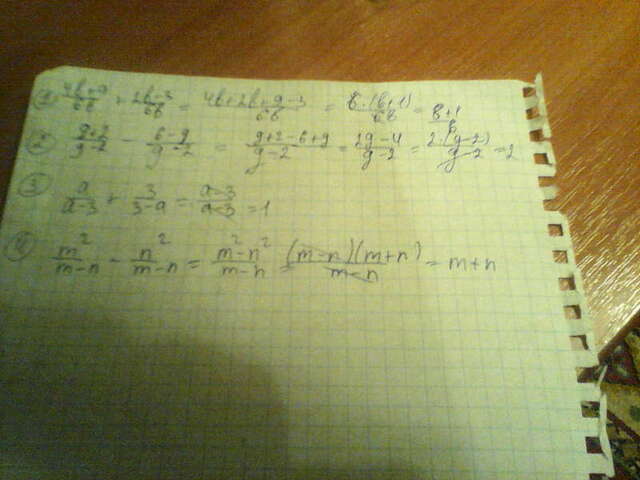 ① (4b+9)/6b + (2b-3)/6b = (4b+2b+9-3)/6b = 6·(b+1)/6b = (b+1)/b
② (y+2)/(y-2) - (6-y)/(y-2) = (y+2-6+y)/(y-2) = (2y-4)/(y-2) = 2·(y-2)/(y-2) = 2
③ a/(a-3) + 3/(3-a) = (a-3)/(a-3) = 1
④ m²/(m-n) - n²/(m-n) = (m²-n²)/(m-n) = (m-n)(m+n)/(m-n) = m+n